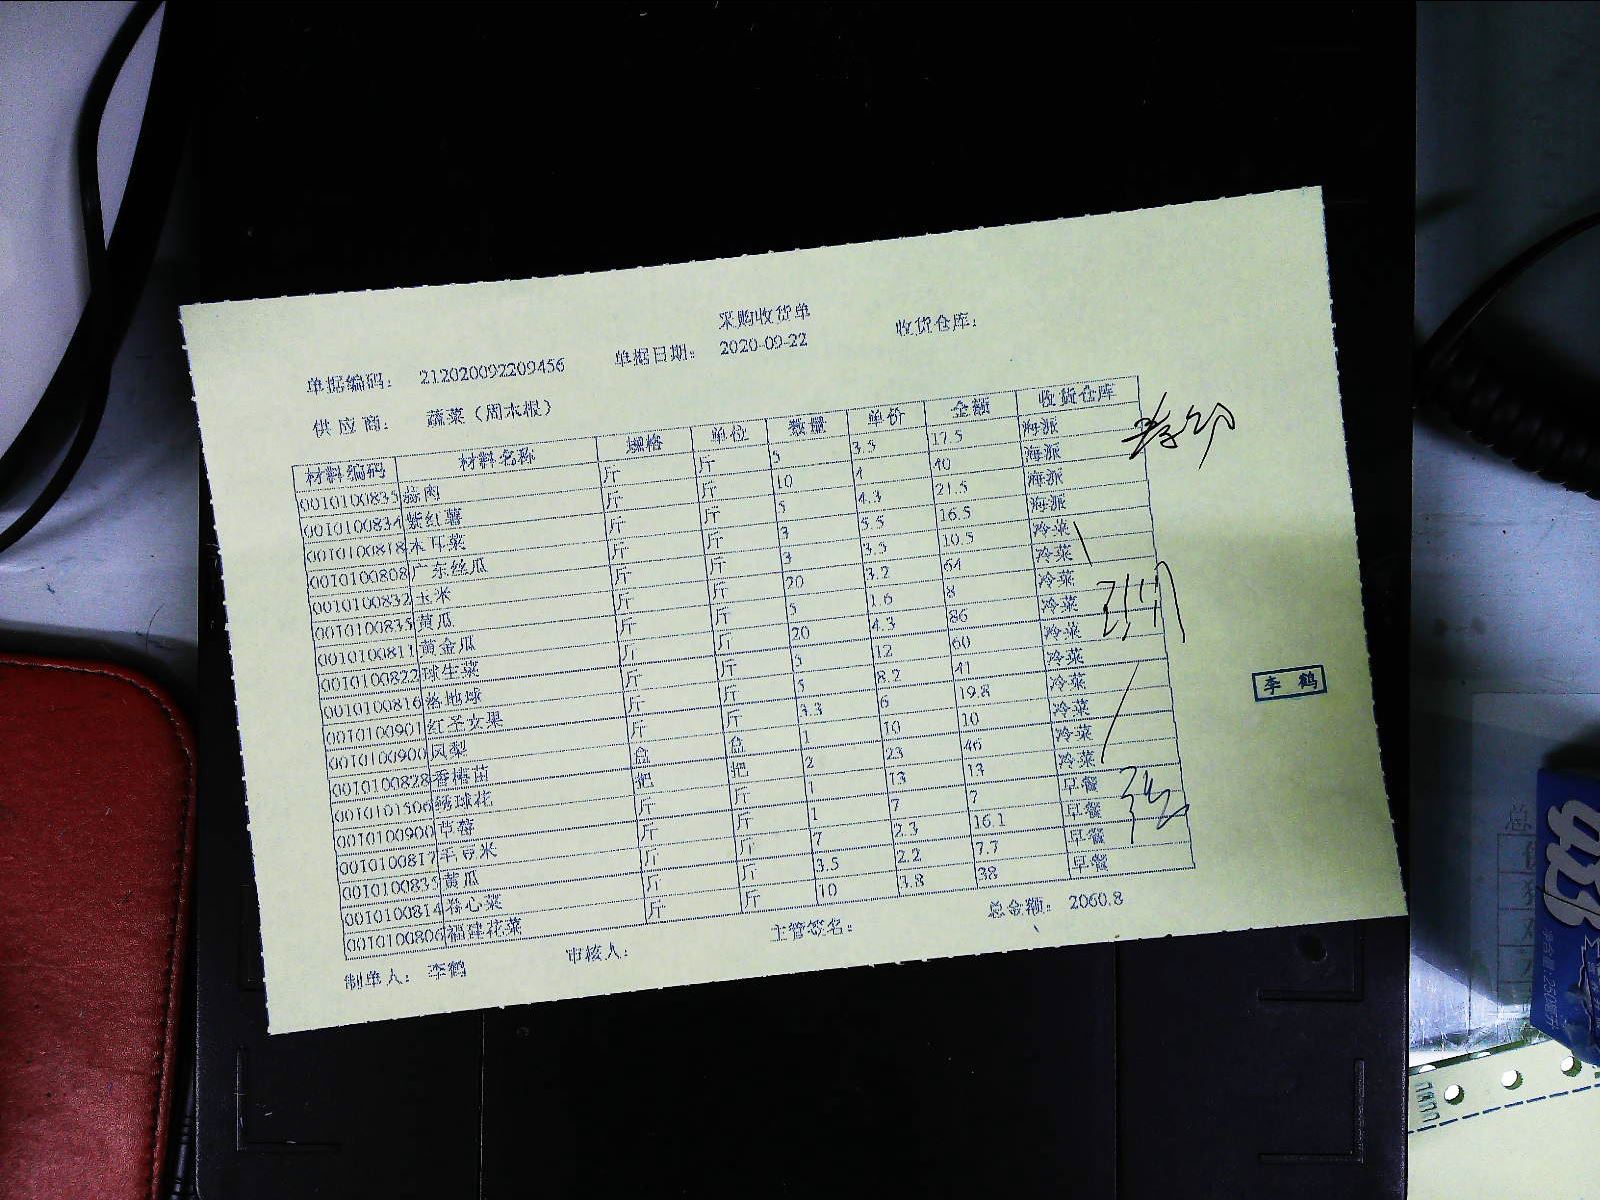 采购收货单
单据编码： 212020092209456 单据日期： 2020-09-22 收货仓库：
供应商： 蔬菜（周木根）
材料编码 材料名称 规格 单位 数量 单价 金额 收货仓库
0010100835 斤 斤 5 3.5 17.5 海派
0010100834 紫红薯 斤 斤 10 4 40 海派
0010100818 木耳菜 斤 斤 5 4.3 21.5 海派
0010100808 广东丝瓜 斤 斤 3 5.5 16.5 海派
0010100832 玉米 斤 斤 3 3.5 10.5 冷菜
0010100835 黄瓜 斤 斤 20 3.2 64 冷菜
0010100811 黄金瓜 斤 斤 5 1.6 8 冷菜
0010100822 球生菜 斤 斤 20 4.3 86 冷菜
0010100816 落地球 斤 斤 5 12 60 冷菜
0010100901 红圣女果 斤 斤 5 8.2 41 冷菜
0010100900 凤梨 斤 斤 3.3 6 19.8 冷菜
0010100828 香椿苗 盒 盒 1 10 10 冷菜
0010101506 绣球花 把 把 2 23 46 冷菜
0010100900 草莓 斤 斤 1 13 13 冷菜
0010100817 毛豆米 斤 斤 1 7 7 早餐
0010100835 黄瓜 斤 斤 7 2.3 16.1 早餐
0010100814 卷心菜 斤 斤 3.5 2.2 7.7 早餐
0010100806 福建花菜 斤 斤 10 3.8 38 早餐
制单人： 李鹤 审核人： 主管签名： 总金额： 2060.8
李 鹤